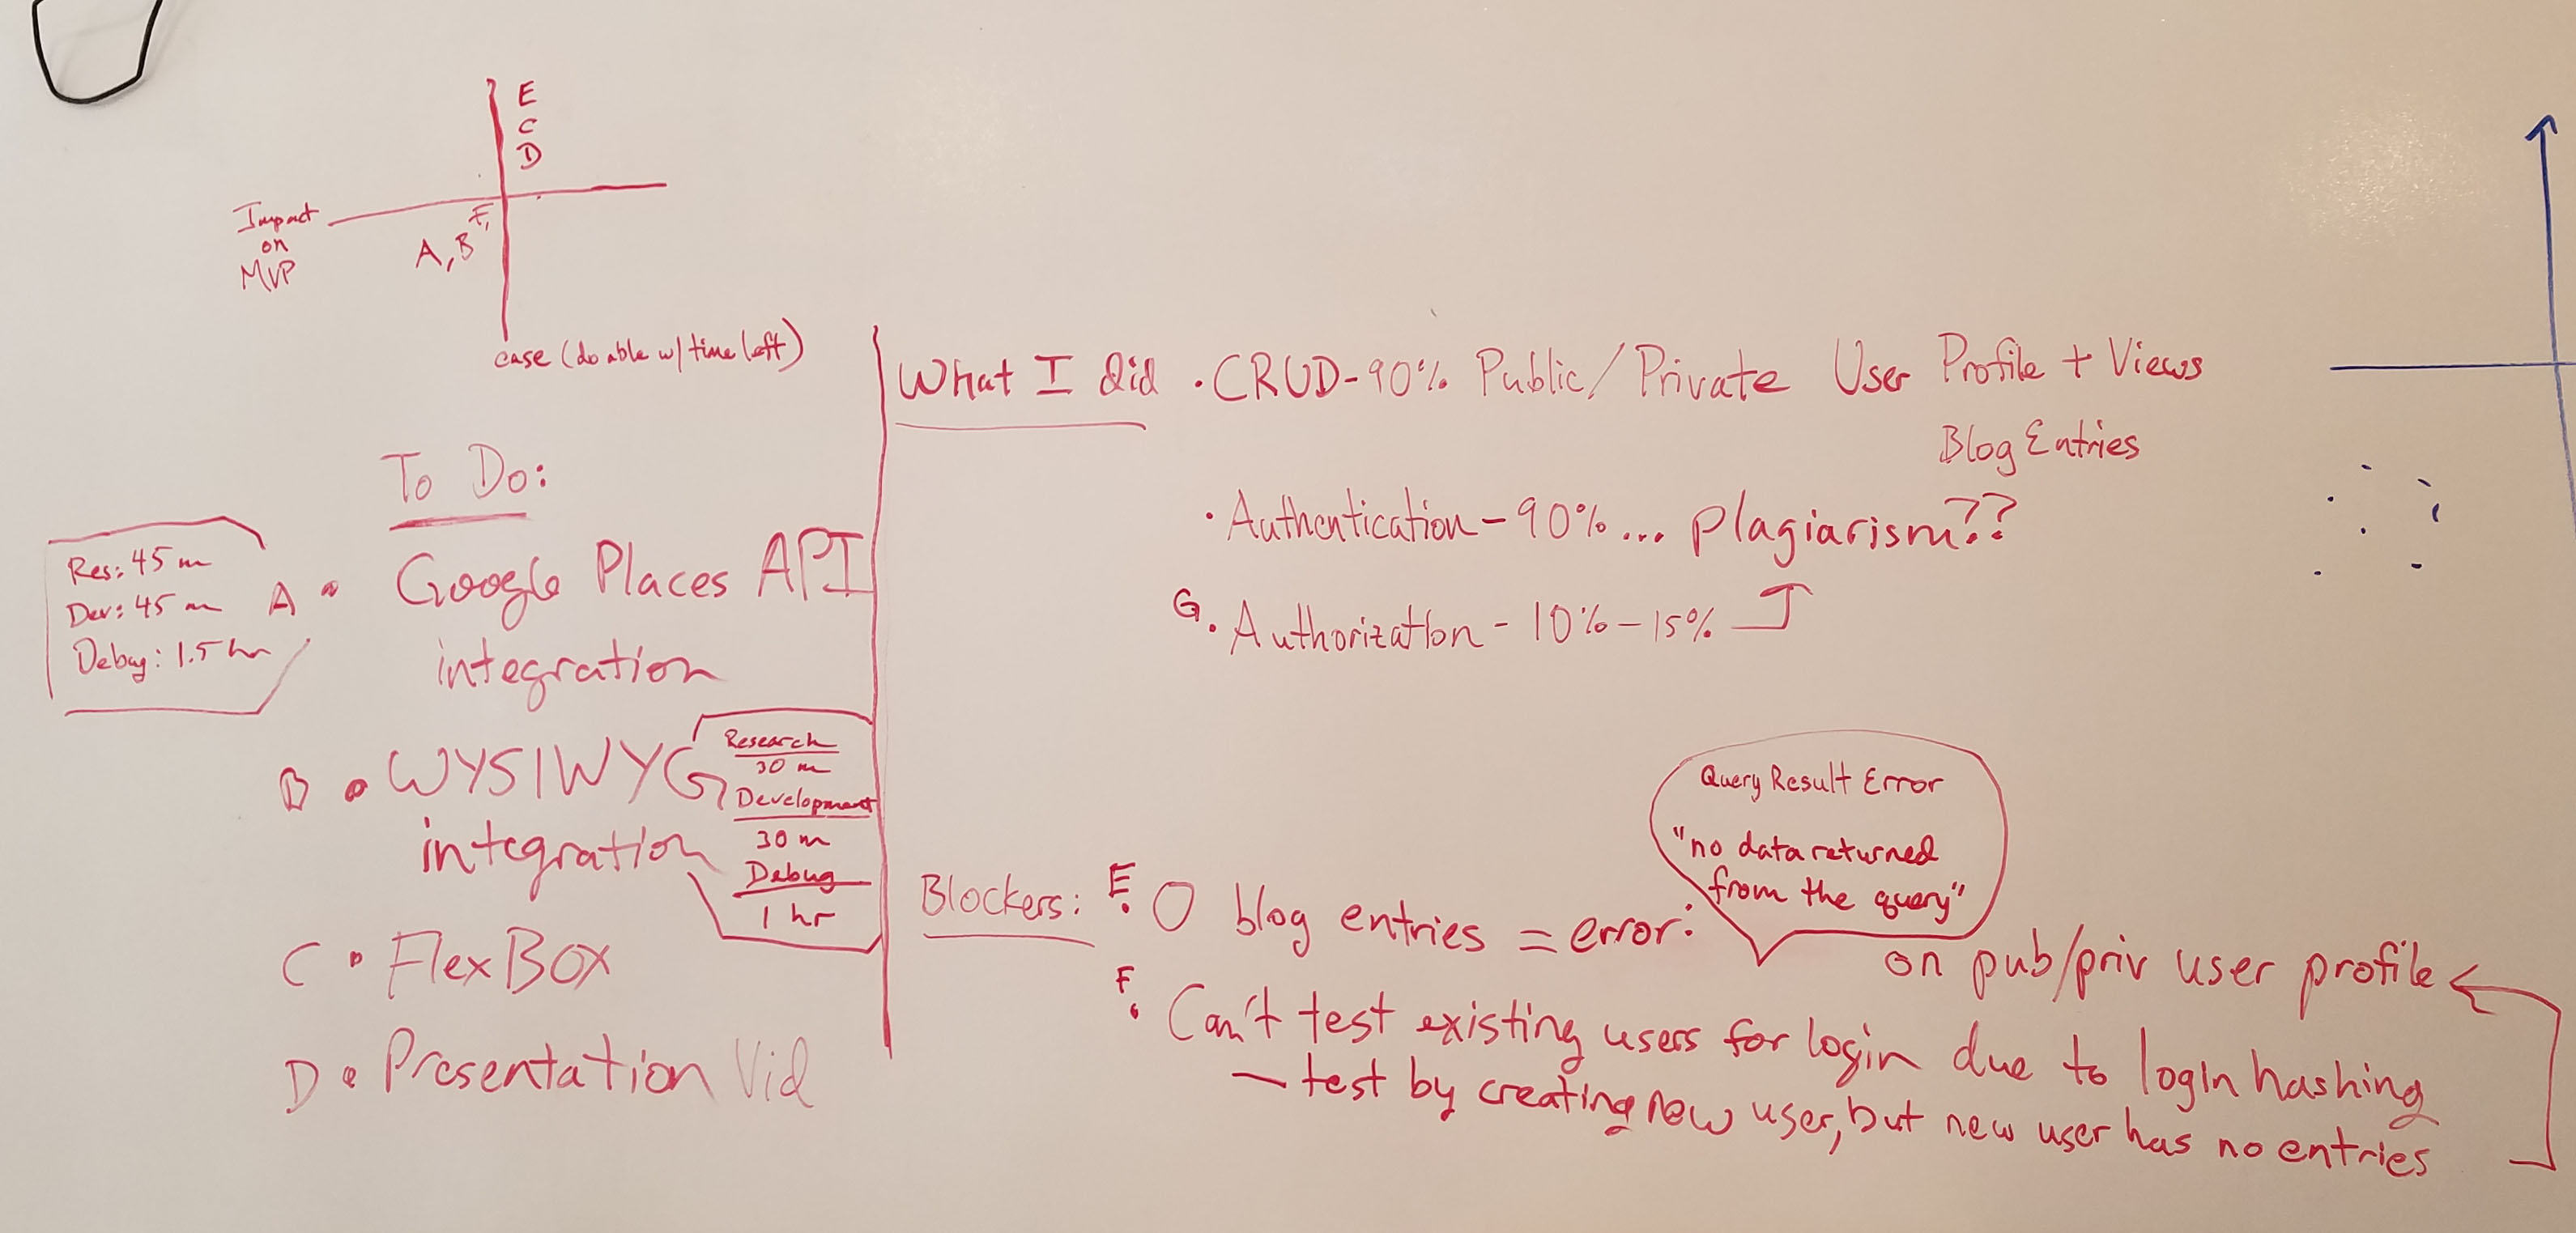 E
C
D
Impact
on
MVP
F,
A, B
ease (doable w/ time left)
To Do:
Res: 45 m
Dev: 45 m
Debug: 1.5 hr
A • Google Places API
integration
B • WYSIWYG
integration
Research
30 m
Development
30 m
Debug
1 hr
C • FlexBOX
D • Presentation Vid
What I did • CRUD - 90% Public/Private User Profile + Views
Blog Entries
• Authentication - 90% ... plagiarism??
G. Authorization - 10% - 15%
Query Result Error
"no data returned
from the query"
Blockers: E. 0 blog entries = error:
on pub/priv user profile
F. Can't test existing users for login due to login hashing
- test by creating new user, but new user has no entries